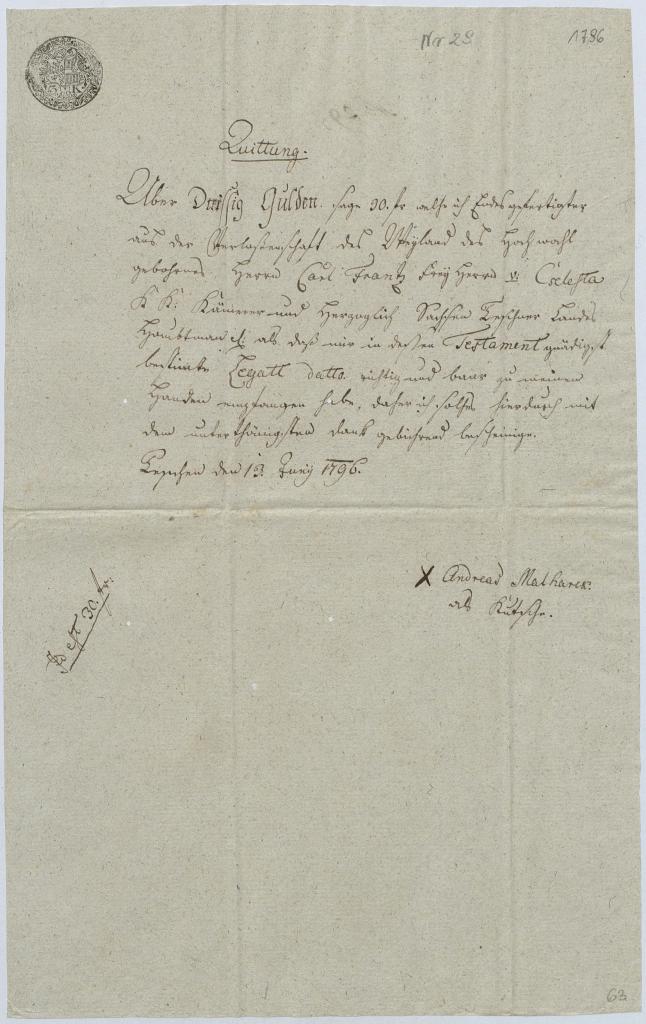 Nr 29
1796
3 K
Quittung.
Über Dreissig Gulden. sage 30. fr welche ich Endesgefertigter
aus der Verlaßenschaft des Weyland des Hoch wohl
gebohrnes Herrn Carl Frantz Frey Herrn v: Cselesta
K K: Kämerer und Herzoglich Sachsen Teschner Landes
Haubtman als daß mir in dessen Testament gnädigst
bestimte Legatt datto richtig und baar zu meinen
Handen empfangen habe, daher ich solches hierdurch mit
dem unterthänigsten Dank gebührend bescheinige.
Teschen den 13 Juny 1796.
X Andreas Matharek.
als Kutscher.
Id est 30. fr:
63